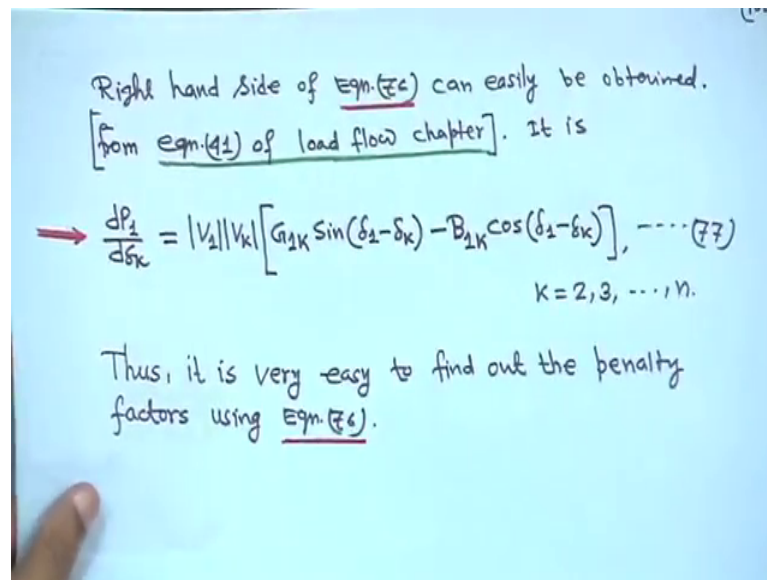 Right hand side of Eqn.(76) can easily be obtained.
[from eqn.(41) of load flow chapter]. It is
→ dP₁/dδₖ = |V₁||Vₖ|[G₁ₖ Sin(δ₁-δₖ) - B₁ₖ cos(δ₁-δₖ)], ----(77)
K = 2,3, ---, n.
Thus, it is very easy to find out the penalty
factors using Eqn.(76).